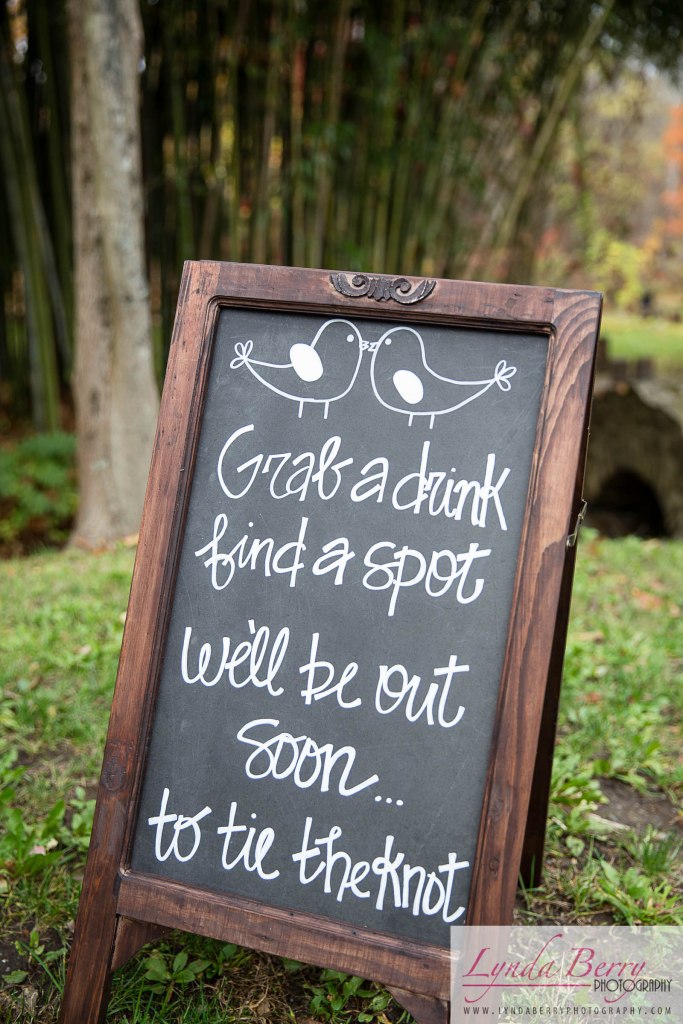 Grab a drink
find a spot
We'll be out
soon...
to tie the knot
Lynda Berry
PHOTOGRAPHY
WWW.LYNDABERRYPHOTOGRAPHY.COM